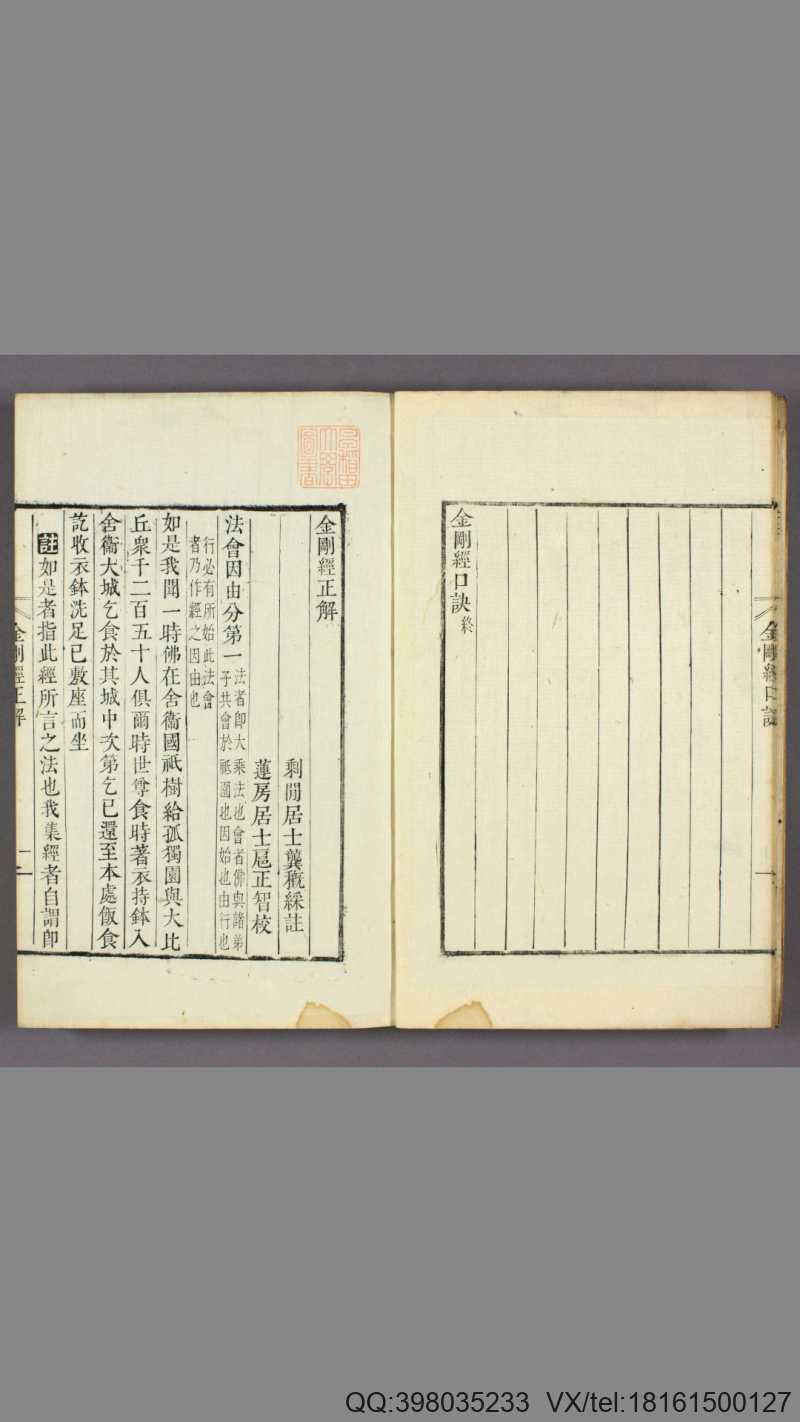 金剛經口訣
金剛經口訣終
金剛經正解
剩閒居士龔穊綵註
蓮房居士扈正智校
法會因由分第一法者即大乘法也會者佛與諸弟
子共會於祇園也因始也由行也
行必有所始此法會
者乃作經之因由也
如是我聞一時佛在舍衞國祇樹給孤獨園與大比
丘衆千二百五十人俱爾時世尊食時著衣持鉢入
舍衞大城乞食於其城中次第乞已還至本處飯食
訖收衣鉢洗足已敷座而坐
註如是者指此經所言之法也我集經者自謂即
金剛經正解
一
QQ:398035233 VX/tel:18161500127